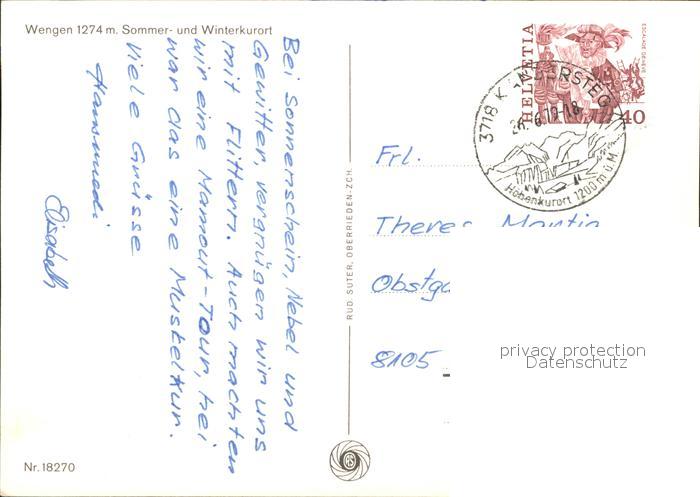 Wengen 1274 m. Sommer- und Winterkurort
Bei Sonnenschein, Nebel und
Gewitter vergnügen wir uns
mit Flittern. Auch machten
wir eine Mamout-Tour, hei
war das eine Muskelkur.
Viele Grüsse
Hansruedi
Elisabeth
Nr. 18270
RUD. SUTER, OBERRIEDEN-ZCH.
HELVETIA
ESCALADE GENÈVE
40
3718 KANDERSTEG
Höhenkurort 1200 m ü. M.
Frl.
Theres
Obstga
8105
privacy protection
Datenschutz